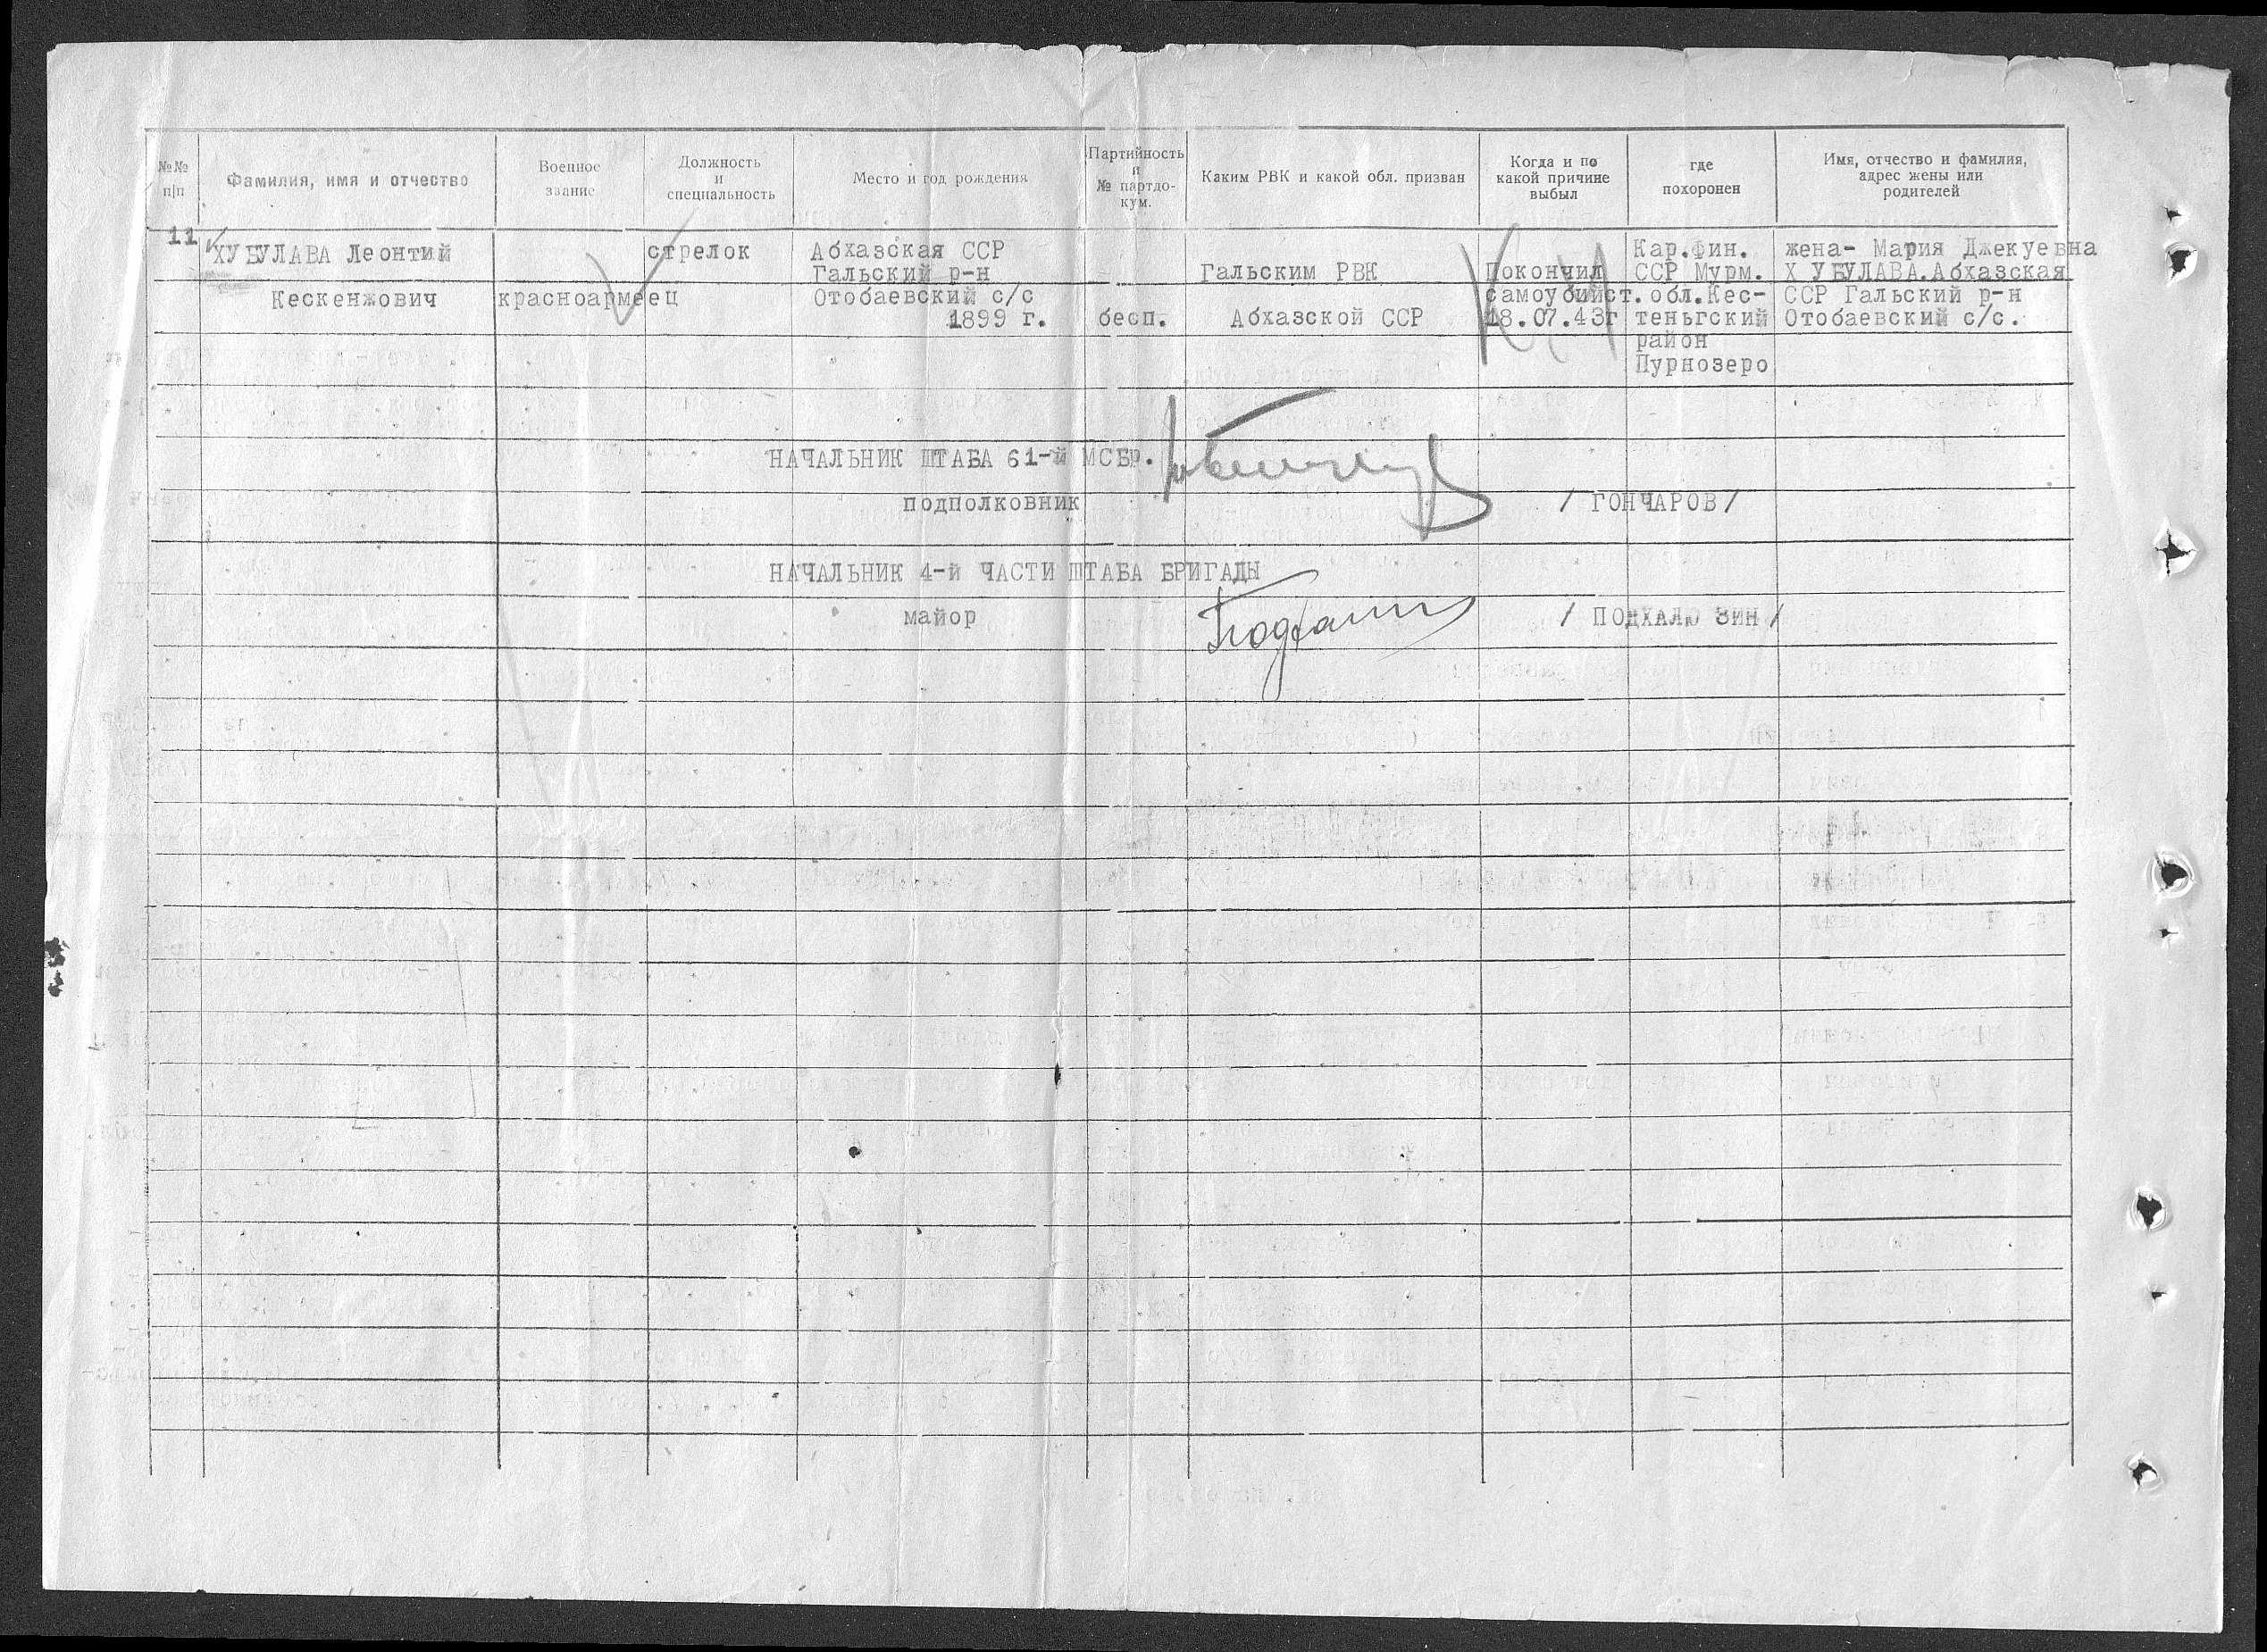 №№ п|п
Фамилия, имя и отчество
Военное звание
Должность и специальность
Место и год рождения
Партийность и № партдо-кум.
Каким РВК и какой обл. призван
Когда и по какой причине выбыл
где похоронен
Имя, отчество и фамилия, адрес жены или родителей
11
ХУБУЛАВА Леонтий
Кескенжович
красноармеец
стрелок
Абхазская ССР
Гальский р-н
Отобаевский с/с
1899 г.
бесп.
Гальским РВК
Абхазской ССР
Покончил
самоубийст.
18.07.43г
Кар.фин.
ССР Мурм.
обл.Кес-
теньгский
район
Пурнозеро
жена- Мария Джекуевна
Х УБУЛАВА.Абхазская
ССР Гальский р-н
Отобаевский с/с.
НАЧАЛЬНИК ШТАБА 61-й МСБр.
подполковник / ГОНЧАРОВ/
НАЧАЛЬНИК 4-й ЧАСТИ ШТАБА БРИГАДЫ
майор / ПОДХАЛЮ ЗИН/